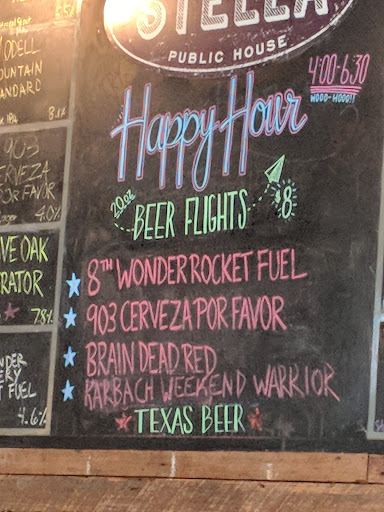 STELLA
PUBLIC HOUSE
4:00-6:30
WOOO-HOOO!!
Happy Hour
20oz
BEER FLIGHTS
$8
8TH WONDER ROCKET FUEL
903 CERVEZA POR FAVOR
BRAIN DEAD RED
KARBACH WEEKEND WARRIOR
TEXAS BEER
ODELL
OUNTAIN
ANDARD
8.1%
903
CERVEZA
POR FAVOR
4.0%
VE OAK
RATOR
7.8%
NDER
FUEL
4.6%